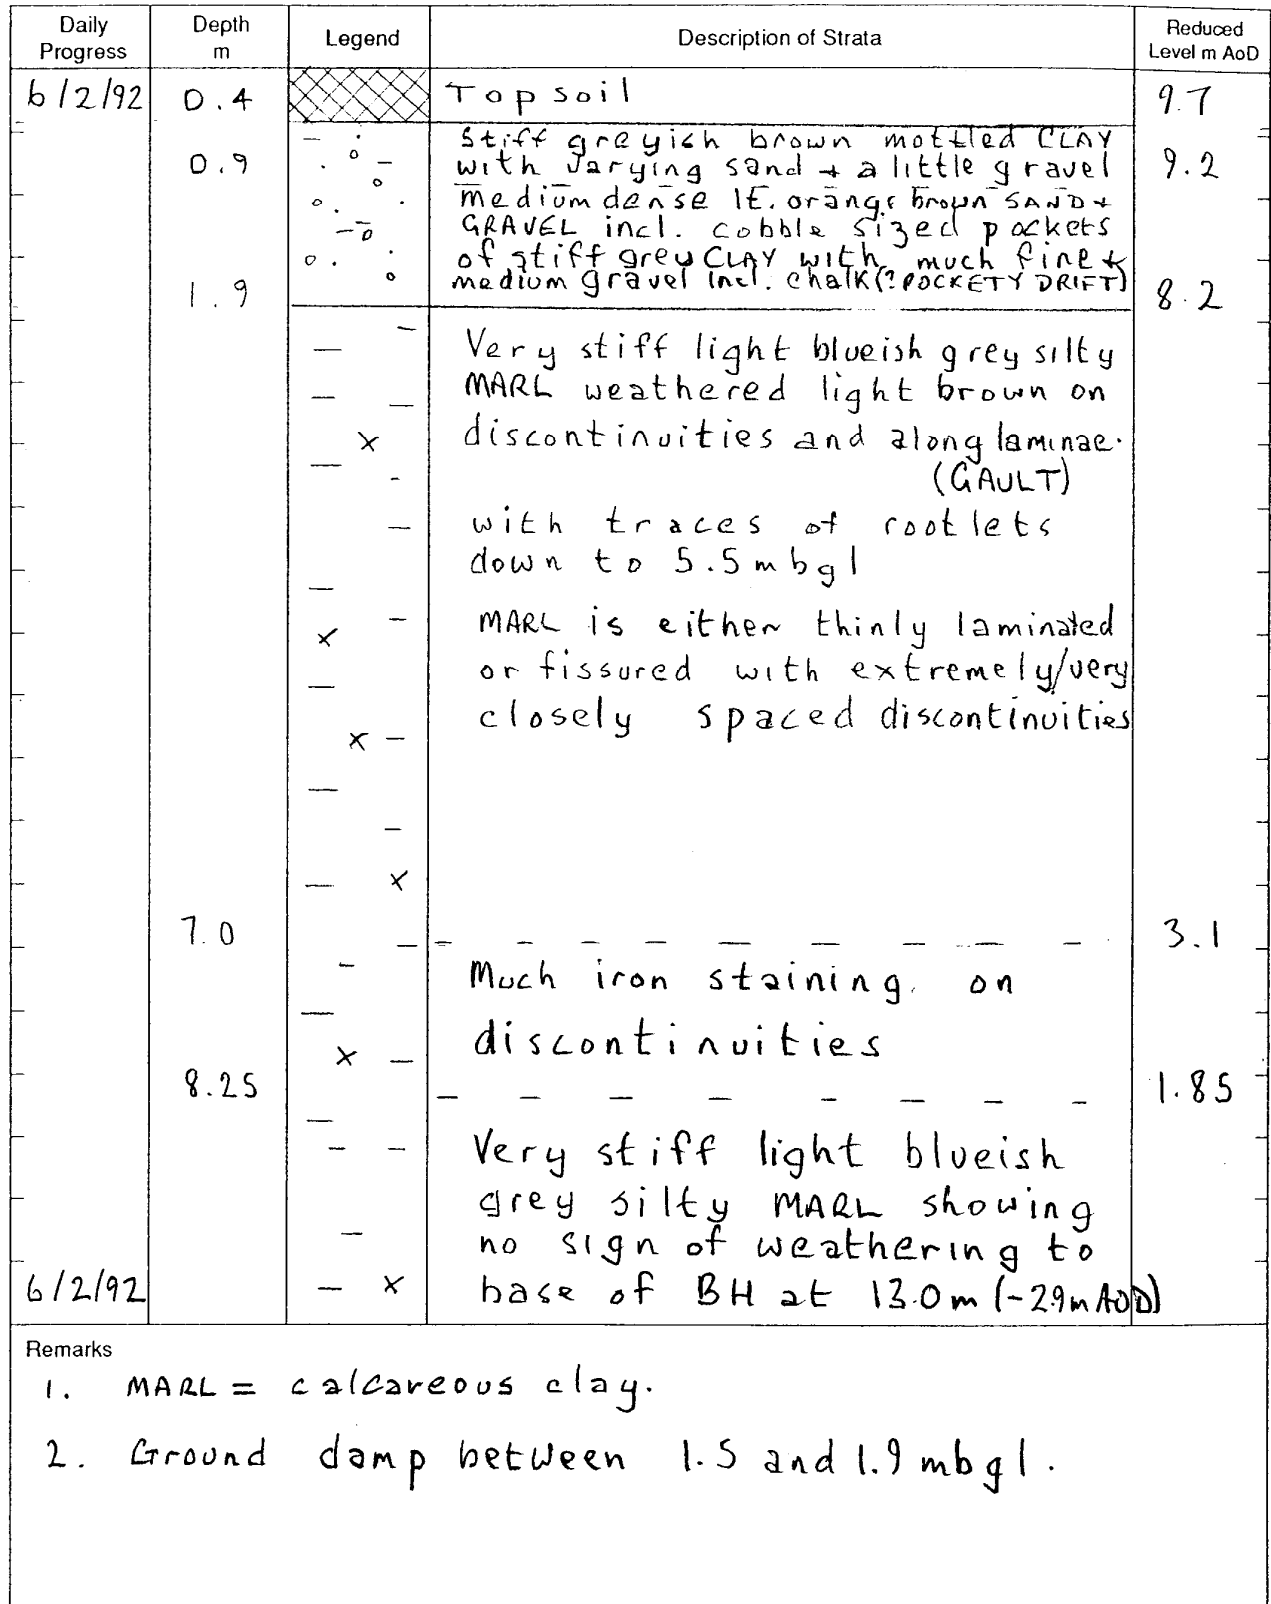 Daily Progress Depth m Legend Description of Strata Reduced Level m AoD
6/2/92 0.4 Topsoil 9.7
Stiff greyish brown mottled CLAY
0.9 with varying sand + a little gravel 9.2
medium dense lt. orange brown SAND +
GRAVEL incl. cobble sized pockets
of stiff grey CLAY with much fine +
1.9 medium gravel incl. chalk (? POCKETY DRIFT) 8.2
Very stiff light blueish grey silty
MARL weathered light brown on
discontinuities and along laminae.
(GAULT)
with traces of rootlets
down to 5.5 mbgl
MARL is either thinly laminated
or fissured with extremely/very
closely spaced discontinuities
7.0 3.1
Much iron staining on
discontinuities
8.25 1.85
Very stiff light blueish
grey silty MARL showing
no sign of weathering to
6/2/92 base of BH at 13.0m (-2.9m AOD)
Remarks
1. MARL = calcareous clay.
2. Ground damp between 1.5 and 1.9 mbgl.